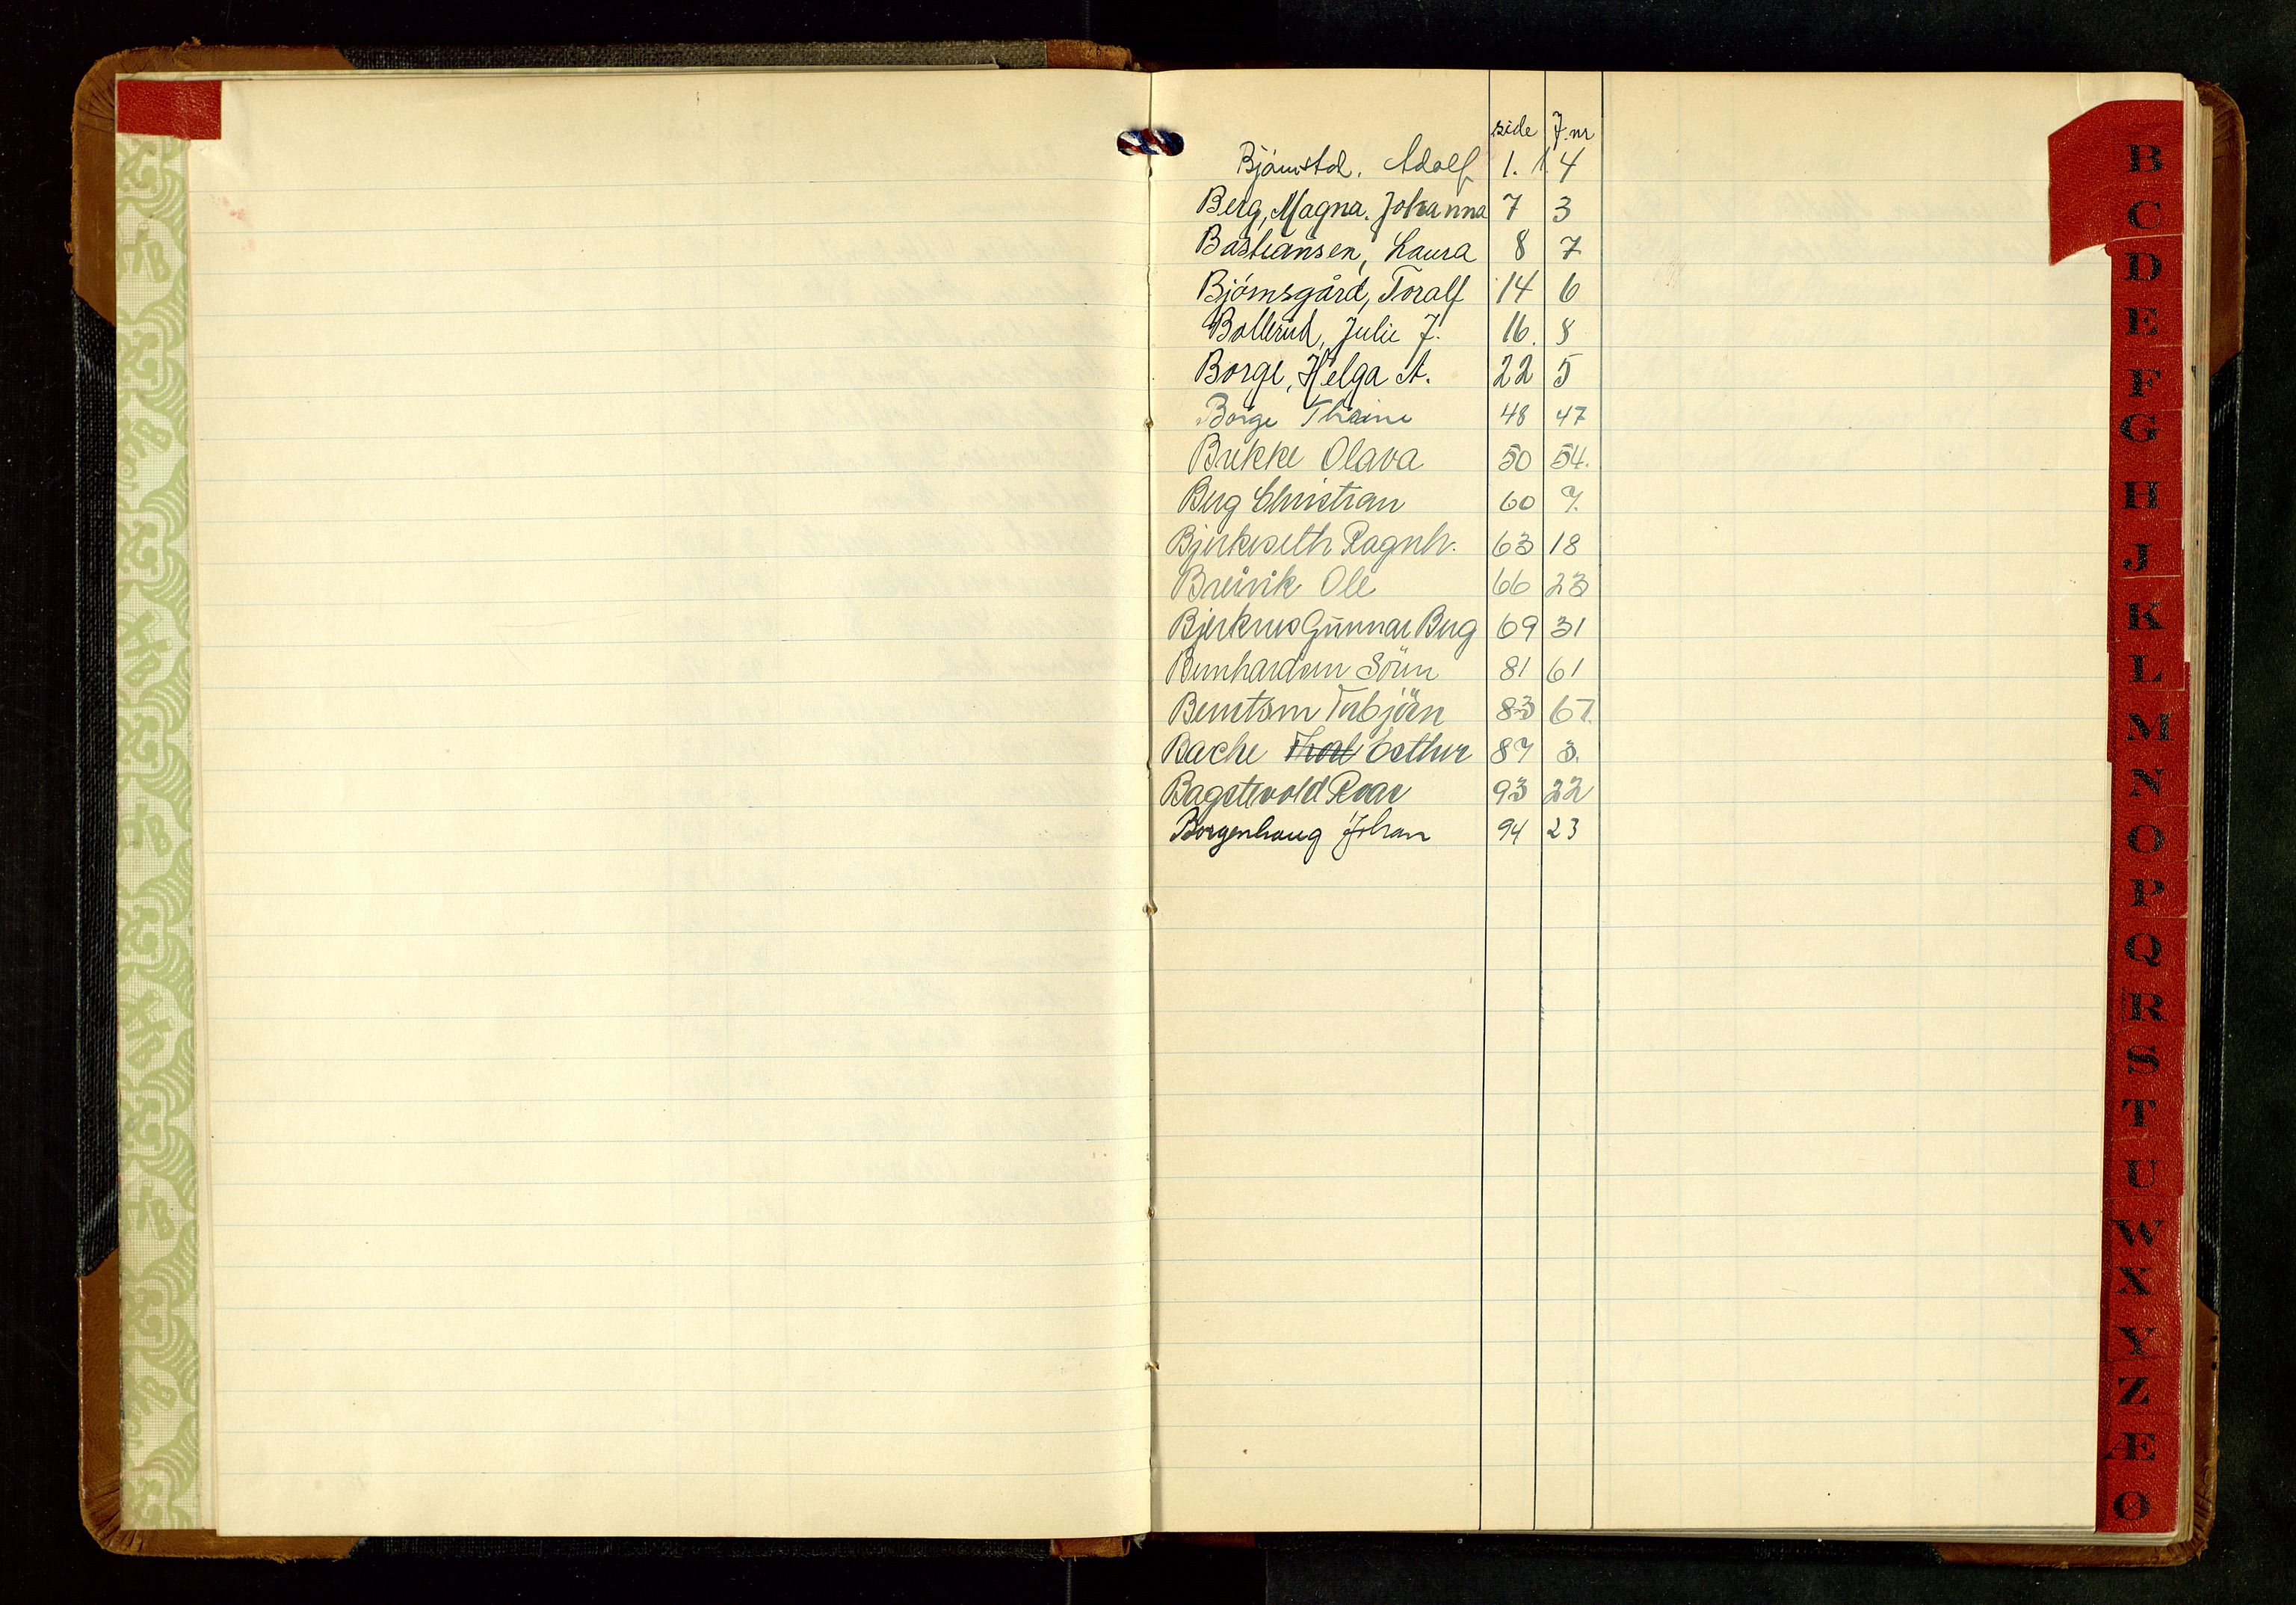 side J.nr
Bjørnstad. Adolf 1. 4
Berg, Magna. Johanna 7 3
Bastiansen, Laura 8 7
Bjørnsgård, Toralf 14 6
Bollerud, Julie J. 16. 8
Borge, Helga A. 22 5
Borge 48 47
Brekke Olava 50 54.
Berg Christian 60 7.
Bjerkeseth Ragnh. 63 18
Breivik Ole 66 23
Bjerknes Gunnar Berg 69 31
Bernhardsen Sören 81 61
Berntsen Torbjörn 83 67.
Bache Thord Esther 87 3.
Bagstevold Roar 93 22
Borgenhaug Johan 94 23
B
C
D
E
F
G
H
J
K
L
M
N
O
P
Q
R
S
T
U
W
X
Y
Z
Æ
Ø